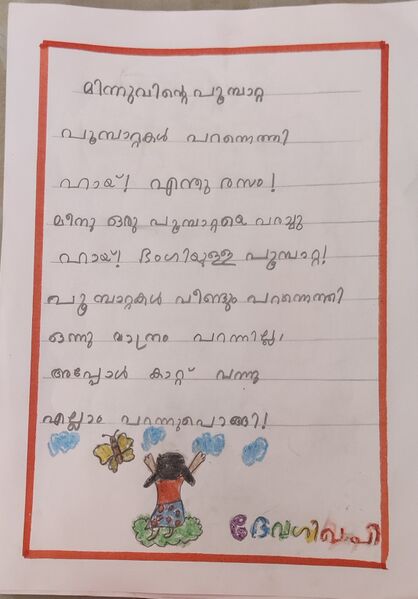 മിന്നുവിന്റെ പൂമ്പാറ്റ
പൂമ്പാറ്റകൾ പറന്നെത്തി
ഹായ്! എന്തു രസം!
മീനു ഒരു പൂമ്പാറ്റയെ വരച്ചു
ഹായ്! ഭംഗിയുള്ള പൂമ്പാറ്റ!
പൂമ്പാറ്റകൾ വീണ്ടും പറന്നെത്തി
ഒന്നു മാത്രം പറന്നില്ല,
അപ്പോൾ കാറ്റ് വന്നു
എല്ലാം പറന്നുപൊങ്ങി!